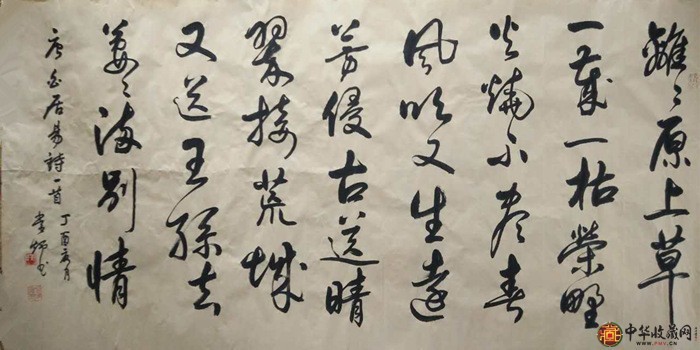 離々原上草
一歲一枯榮野
火燒不盡春
風吹又生遠
芳侵古道晴
翠接荒城
又送王孫去
萋々滿別情
唐白居易詩一首
丁酉
中华收藏网
www.PMV.CN